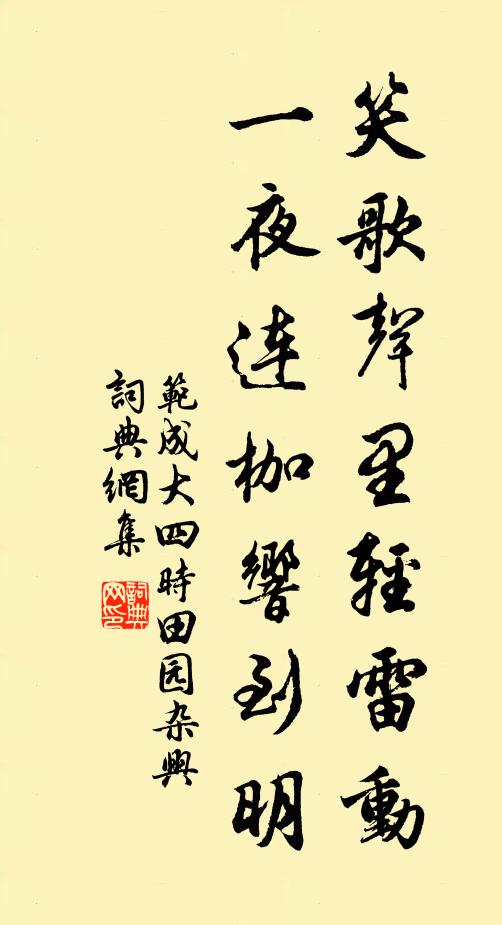 笑歌聲里輕雷動
一夜連枷響到明
範成大四時田园杂興
詞典網集
詞典
网印